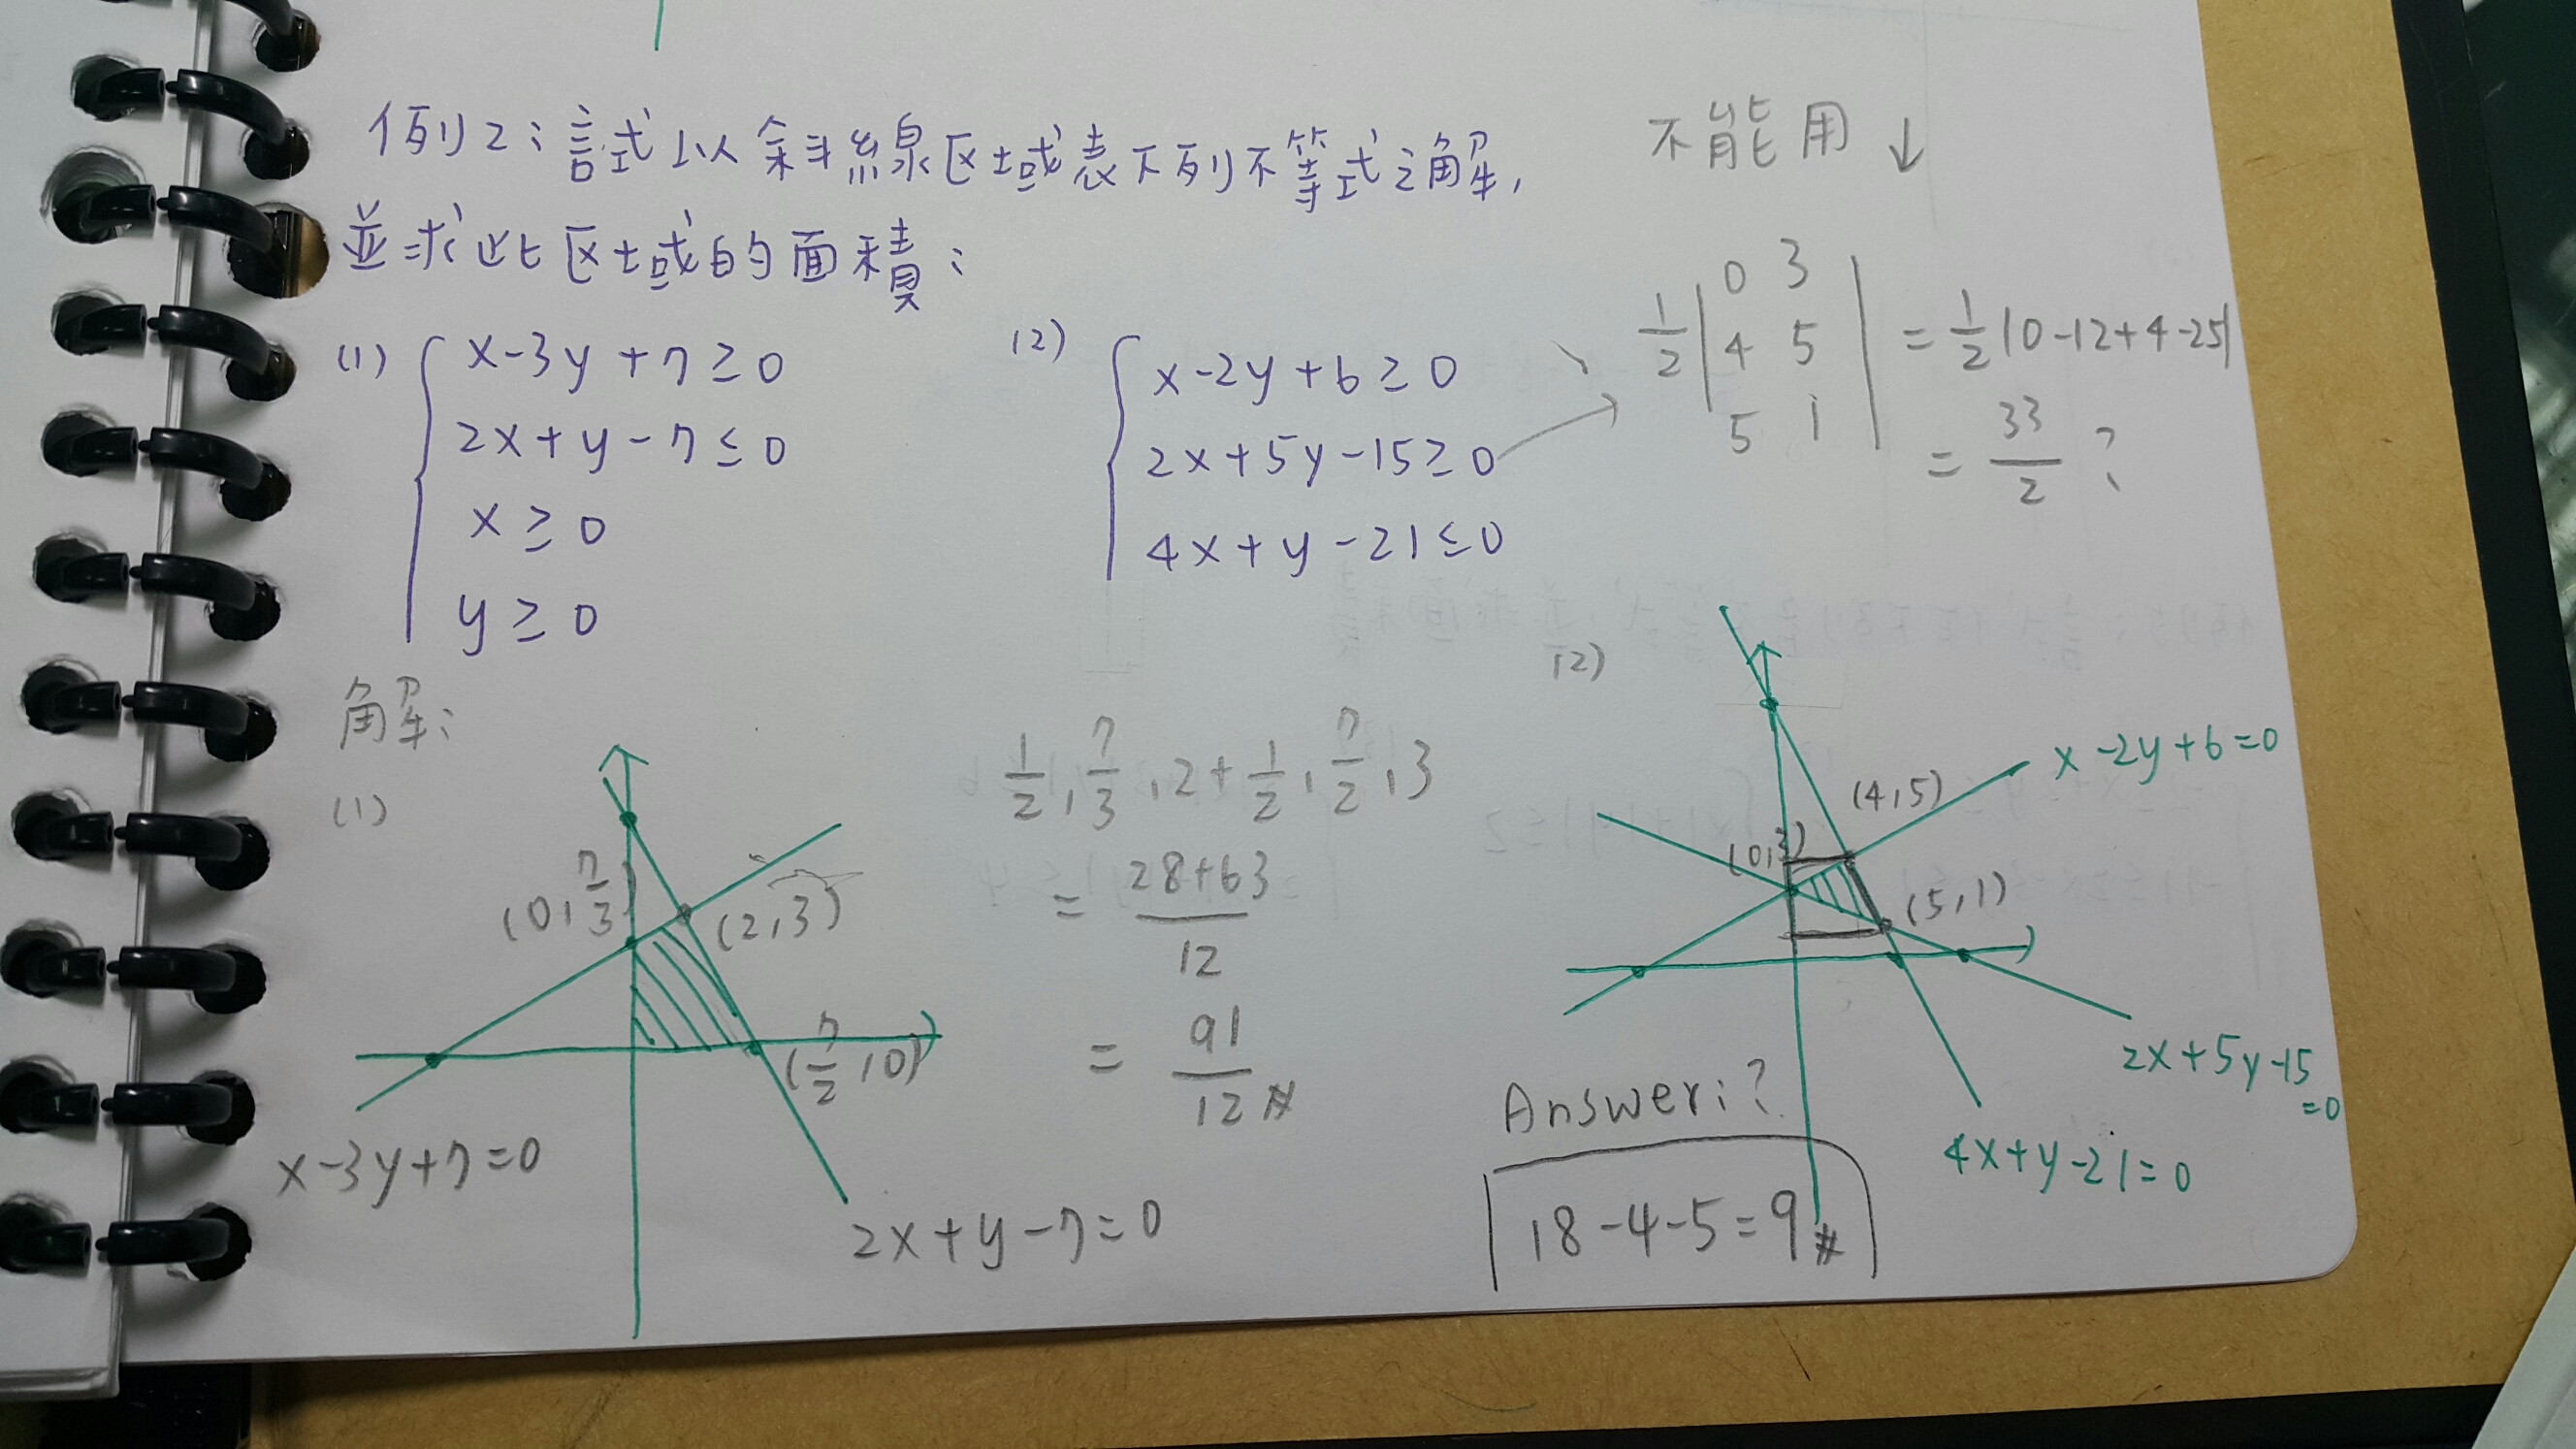 例2：試以斜線区域表下列不等式之解，
並求此区域的面積：
(1) { x-3y+7≥0
2x+y-7≤0
x≥0
y≥0
(2) { x-2y+6≥0
2x+5y-15≥0
4x+y-21≤0
不能用↓
1/2 | 0 3
4 5
5 1 | = 1/2 |0-12+4-25|
= 33/2 ?
解：
(1)
(0,7/3)
(2,3)
(7/2,0)
x-3y+7=0
2x+y-7=0
1/2,7/3,2+1/2,7/2,3
= 28+63/12
= 91/12 #
(2)
x-2y+6=0
(4,5)
(0,3)
(5,1)
2x+5y-15
=0
4x+y-21=0
Answer:?
18-4-5=9#